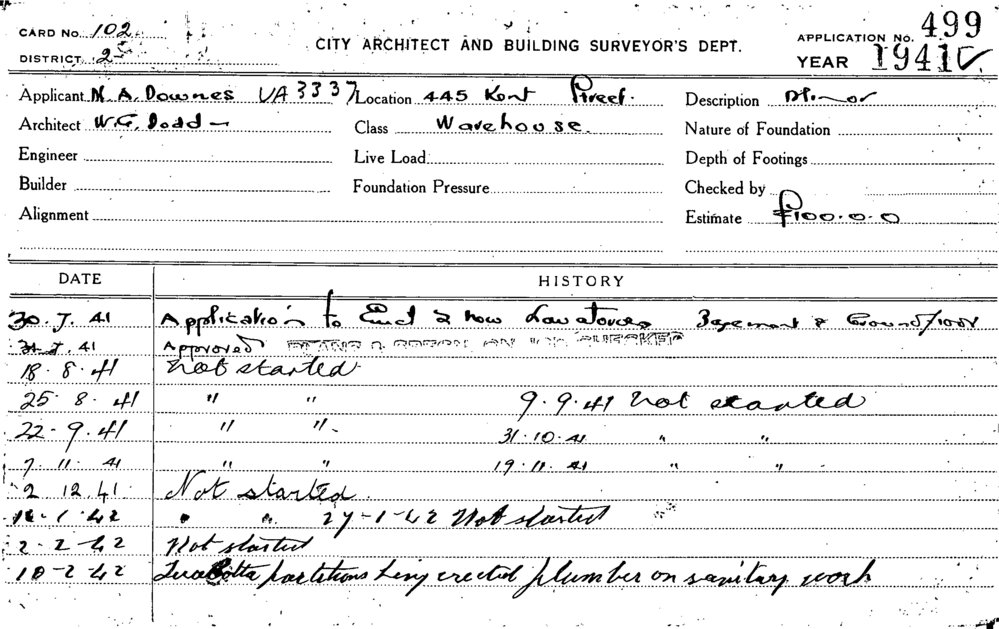 CARD No. 102
DISTRICT 2
CITY ARCHITECT AND BUILDING SURVEYOR'S DEPT.
APPLICATION No. 499
YEAR 1941
Applicant N. A. Downes UA 3337 Location 445 Kent Street. Description Minor
Architect W. G. Dodd Class Warehouse. Nature of Foundation
Engineer Live Load Depth of Footings
Builder Foundation Pressure Checked by
Alignment Estimate £100.0.0
DATE HISTORY
30.7.41 Application to Erect 2 new Lavatories Basement & Ground floor
31.7.41 Approved
18.8.41 Not started
25.8.41 " " 9.9.41 Not started
22.9.41 " " 31.10.41 " "
7.11.41 " " 19.11.41 " "
2.12.41 Not started
1.42 " " 27-1-42 Not started
2-2-42 Not started
10-2-42 Terra Cotta partitions being erected plumber on sanitary work